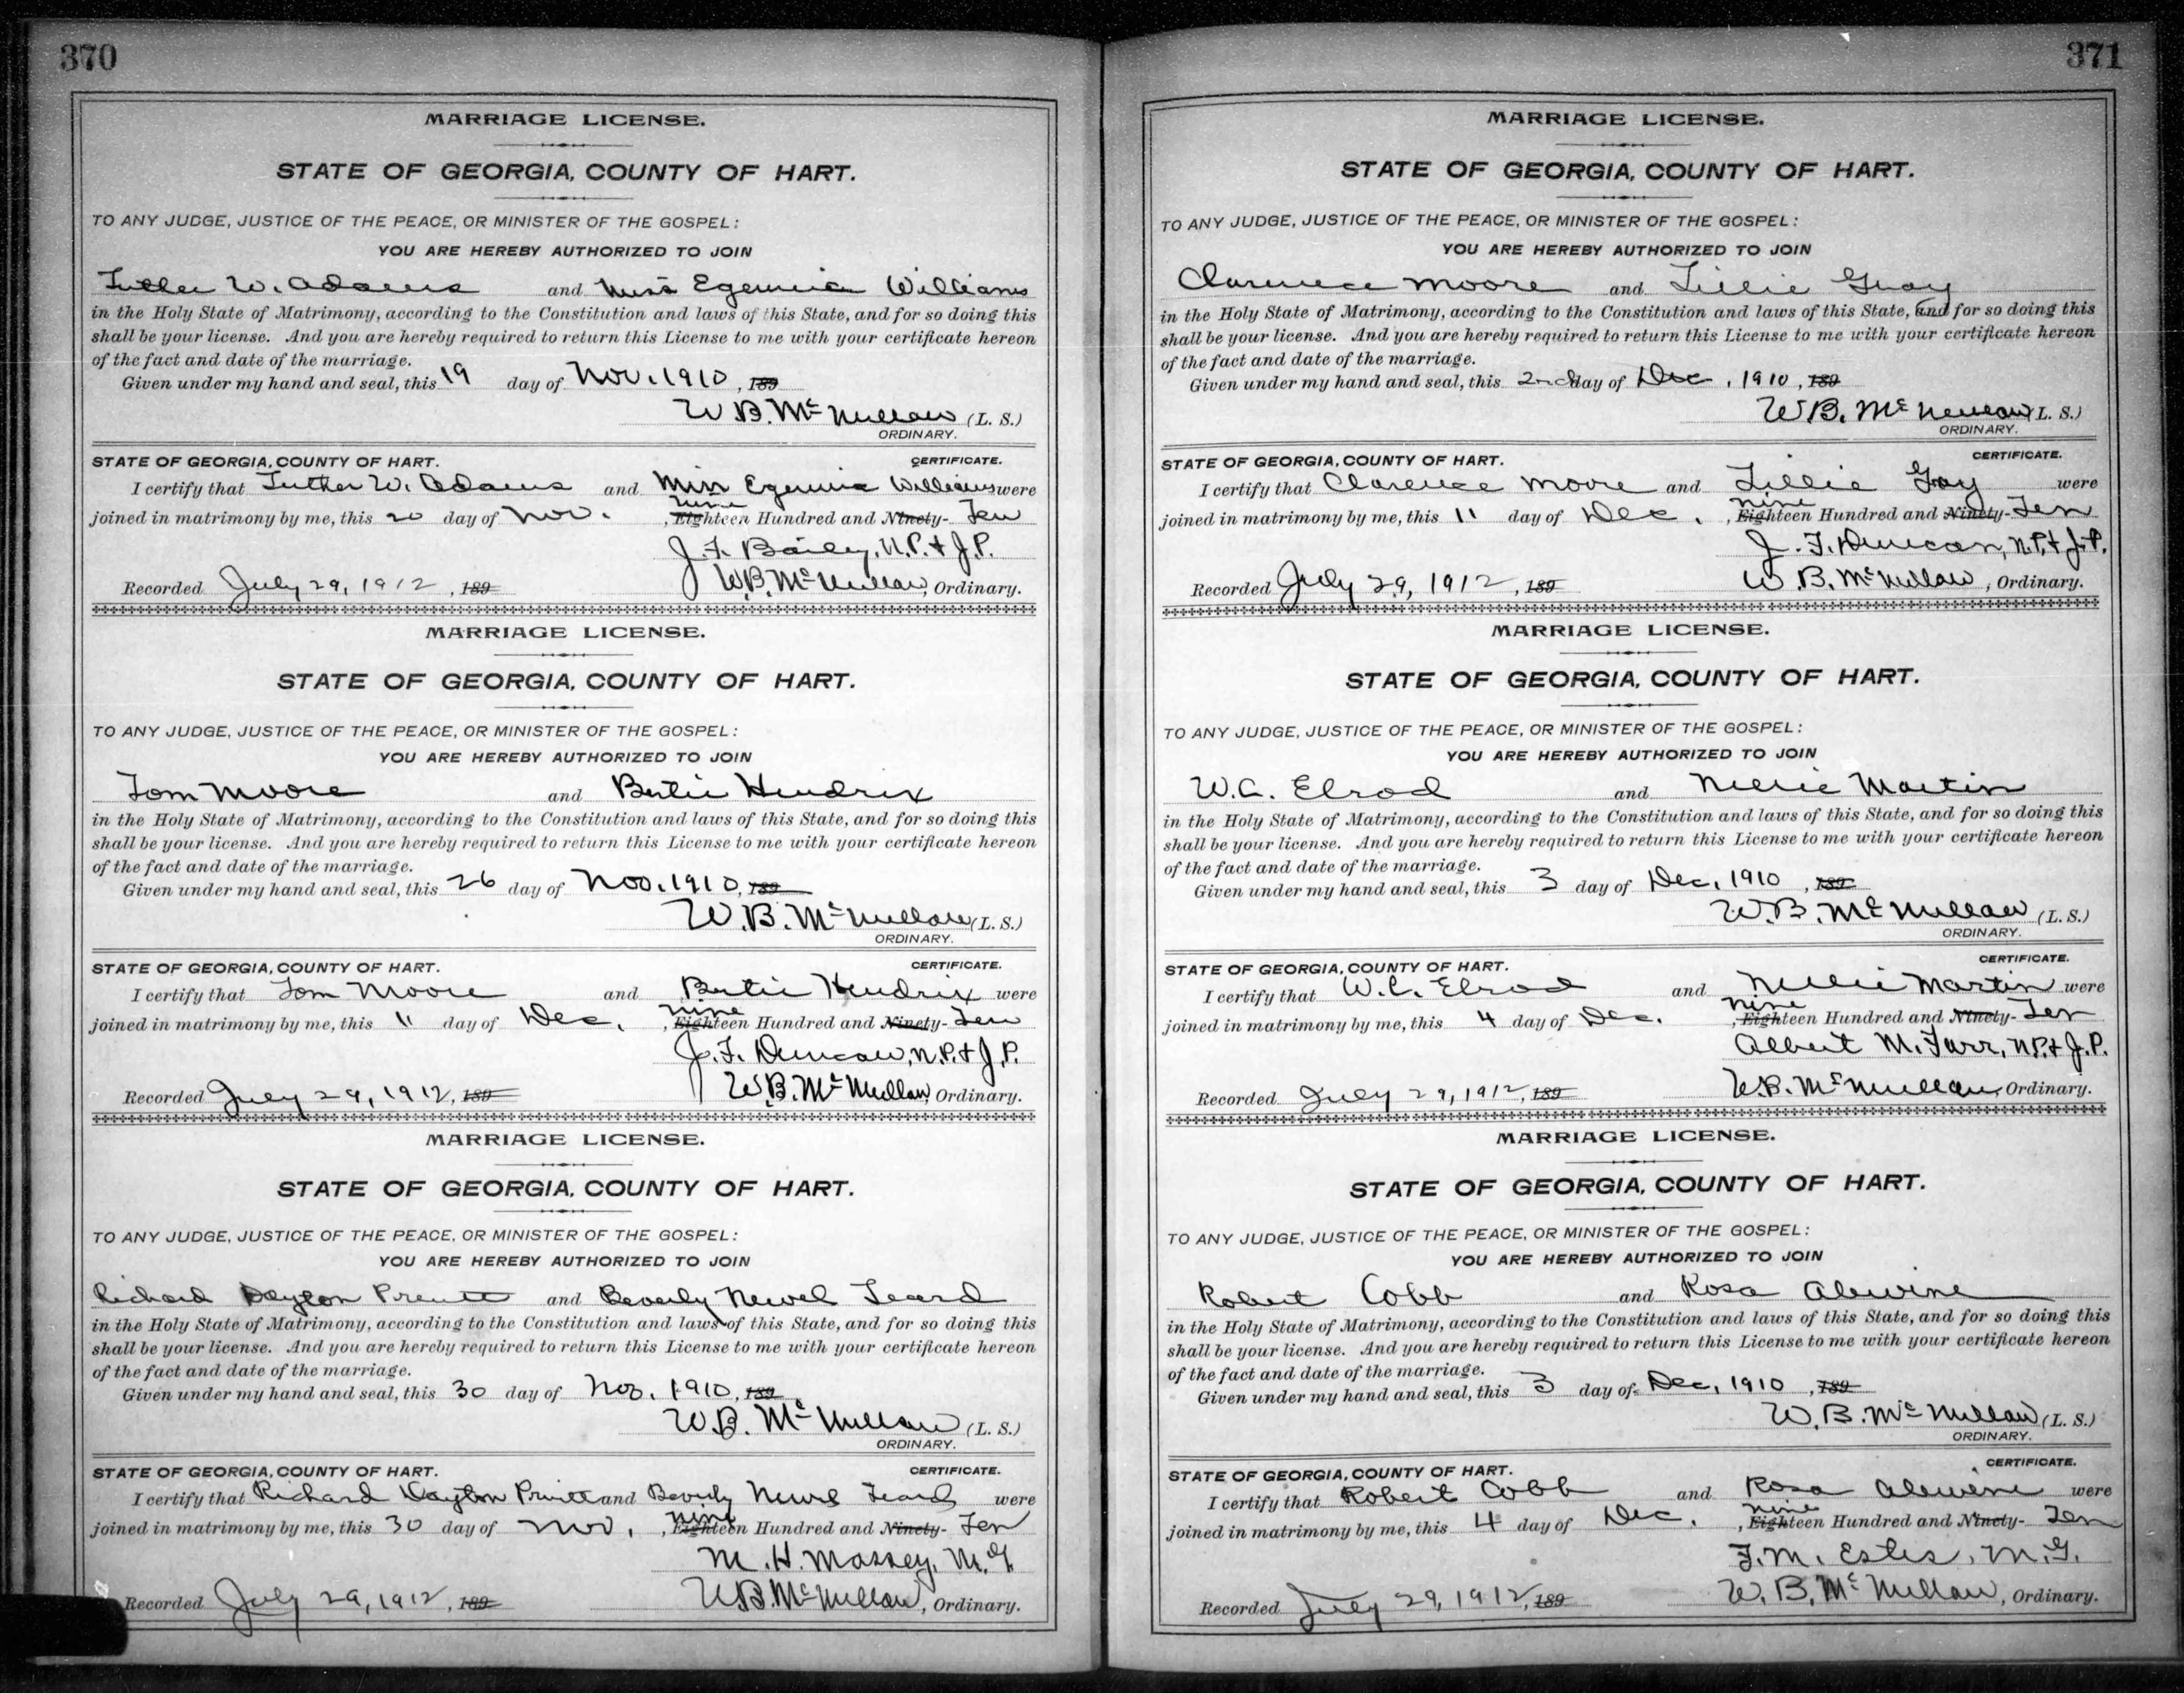 370
MARRIAGE LICENSE.
STATE OF GEORGIA, COUNTY OF HART.
TO ANY JUDGE, JUSTICE OF THE PEACE, OR MINISTER OF THE GOSPEL:
YOU ARE HEREBY AUTHORIZED TO JOIN
Luther W. Adams and Miss Egennia Williams
in the Holy State of Matrimony, according to the Constitution and laws of this State, and for so doing this
shall be your license. And you are hereby required to return this License to me with your certificate hereon
of the fact and date of the marriage.
Given under my hand and seal, this 19 day of Nov. 1910, 189
W B. McMullan (L. S.)
ORDINARY.
STATE OF GEORGIA, COUNTY OF HART. CERTIFICATE.
I certify that Luther W. Adams and Miss Egennia Williams were
nine
joined in matrimony by me, this 20 day of Nov. , Eighteen Hundred and Ninety- Ten
J. F. Bailey, N.P. & J.P.
Recorded July 29, 1912, 189 W.B. McMullan, Ordinary.
MARRIAGE LICENSE.
STATE OF GEORGIA, COUNTY OF HART.
TO ANY JUDGE, JUSTICE OF THE PEACE, OR MINISTER OF THE GOSPEL:
YOU ARE HEREBY AUTHORIZED TO JOIN
Tom Moore and Bertie Hendrix
in the Holy State of Matrimony, according to the Constitution and laws of this State, and for so doing this
shall be your license. And you are hereby required to return this License to me with your certificate hereon
of the fact and date of the marriage.
Given under my hand and seal, this 26 day of Nov. 1910, 189
W.B. McMullan (L. S.)
ORDINARY.
STATE OF GEORGIA, COUNTY OF HART. CERTIFICATE.
I certify that Tom Moore and Bertie Hendrix were
nine
joined in matrimony by me, this 11 day of Dec. , Eighteen Hundred and Ninety- Ten
J. F. Duncan, N.P. & J.P.
Recorded July 29, 1912, 189 W.B. McMullan, Ordinary.
MARRIAGE LICENSE.
STATE OF GEORGIA, COUNTY OF HART.
TO ANY JUDGE, JUSTICE OF THE PEACE, OR MINISTER OF THE GOSPEL:
YOU ARE HEREBY AUTHORIZED TO JOIN
Richard Dayton Pruitt and Beverly Newel Teard
in the Holy State of Matrimony, according to the Constitution and laws of this State, and for so doing this
shall be your license. And you are hereby required to return this License to me with your certificate hereon
of the fact and date of the marriage.
Given under my hand and seal, this 30 day of Nov. 1910, 189
W.B. McMullan (L. S.)
ORDINARY.
STATE OF GEORGIA, COUNTY OF HART. CERTIFICATE.
I certify that Richard Dayton Pruitt and Beverly Newel Teard were
nine
joined in matrimony by me, this 30 day of Nov. , Eighteen Hundred and Ninety- Ten
M. H. Massey, M.G.
Recorded July 29, 1912, 189 W.B. McMullan, Ordinary.
371
MARRIAGE LICENSE.
STATE OF GEORGIA, COUNTY OF HART.
TO ANY JUDGE, JUSTICE OF THE PEACE, OR MINISTER OF THE GOSPEL:
YOU ARE HEREBY AUTHORIZED TO JOIN
Clarence Moore and Lillie Gray
in the Holy State of Matrimony, according to the Constitution and laws of this State, and for so doing this
shall be your license. And you are hereby required to return this License to me with your certificate hereon
of the fact and date of the marriage.
Given under my hand and seal, this 2nd day of Dec. 1910, 189
W.B. McMullan (L. S.)
ORDINARY.
STATE OF GEORGIA, COUNTY OF HART. CERTIFICATE.
I certify that Clarence Moore and Lillie Gray were
nine
joined in matrimony by me, this 11 day of Dec. , Eighteen Hundred and Ninety- Ten
J. F. Duncan, N.P. & J.P.
Recorded July 29, 1912, 189 W.B. McMullan, Ordinary.
MARRIAGE LICENSE.
STATE OF GEORGIA, COUNTY OF HART.
TO ANY JUDGE, JUSTICE OF THE PEACE, OR MINISTER OF THE GOSPEL:
YOU ARE HEREBY AUTHORIZED TO JOIN
W.C. Elrod and Nellie Martin
in the Holy State of Matrimony, according to the Constitution and laws of this State, and for so doing this
shall be your license. And you are hereby required to return this License to me with your certificate hereon
of the fact and date of the marriage.
Given under my hand and seal, this 3 day of Dec, 1910, 189
W.B. McMullan (L. S.)
ORDINARY.
STATE OF GEORGIA, COUNTY OF HART. CERTIFICATE.
I certify that W.C. Elrod and Nellie Martin were
nine
joined in matrimony by me, this 4 day of Dec. , Eighteen Hundred and Ninety- Ten
Albert M. Farr, N.P. & J.P.
Recorded July 29, 1912, 189 W.B. McMullan, Ordinary.
MARRIAGE LICENSE.
STATE OF GEORGIA, COUNTY OF HART.
TO ANY JUDGE, JUSTICE OF THE PEACE, OR MINISTER OF THE GOSPEL:
YOU ARE HEREBY AUTHORIZED TO JOIN
Robert Cobb and Rosa Alewine
in the Holy State of Matrimony, according to the Constitution and laws of this State, and for so doing this
shall be your license. And you are hereby required to return this License to me with your certificate hereon
of the fact and date of the marriage.
Given under my hand and seal, this 3 day of Dec, 1910, 189
W.B. McMullan (L. S.)
ORDINARY.
STATE OF GEORGIA, COUNTY OF HART. CERTIFICATE.
I certify that Robert Cobb and Rosa Alewine were
nine
joined in matrimony by me, this 4 day of Dec. , Eighteen Hundred and Ninety- Ten
F. M. Estes, M.G.
Recorded July 29, 1912, 189 W.B. McMullan, Ordinary.